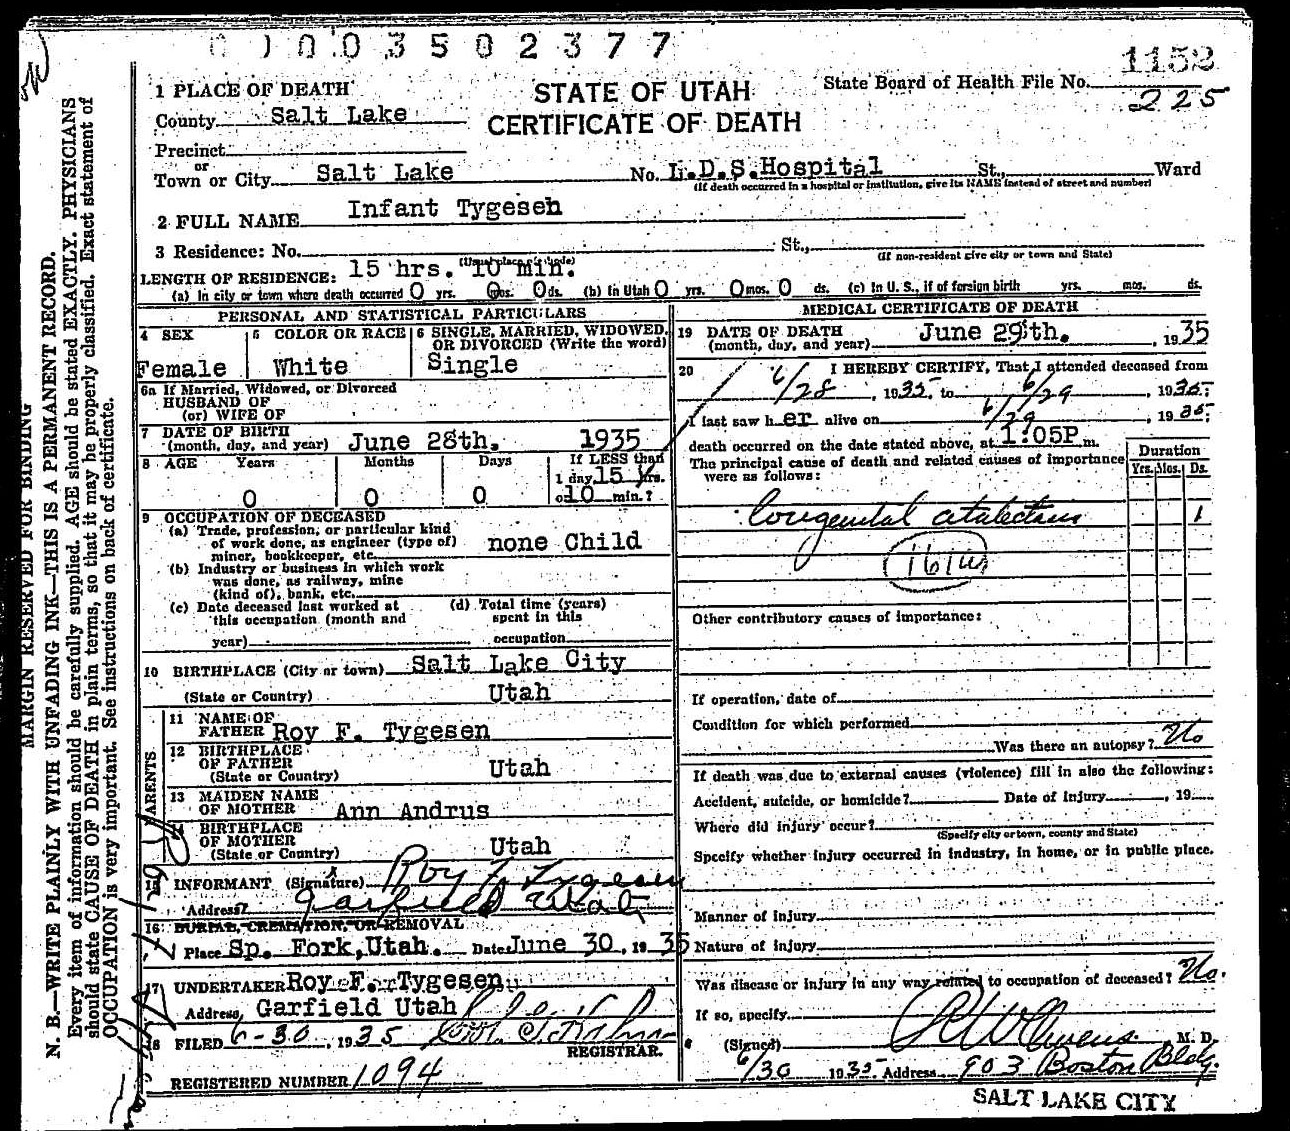 0 0 0 0 3 5 0 2 3 7 7
1152
1 PLACE OF DEATH
STATE OF UTAH
State Board of Health File No.
225
County Salt Lake
CERTIFICATE OF DEATH
Precinct
or
Town or City Salt Lake No. L.D.S. Hospital St., Ward
(If death occurred in a hospital or institution, give its NAME instead of street and number)
2 FULL NAME Infant Tygesen
3 Residence: No. St.,
(Usual place of abode) (If non-resident give city or town and State)
LENGTH OF RESIDENCE: 15 hrs. 10 min.
(a) In city or town where death occurred 0 yrs. 0 mos. 0 ds. (b) In Utah 0 yrs. 0 mos. 0 ds. (c) In U. S., if of foreign birth yrs. mos. ds.
PERSONAL AND STATISTICAL PARTICULARS
4 SEX
Female
5 COLOR OR RACE
White
6 SINGLE, MARRIED, WIDOWED, OR DIVORCED (Write the word)
Single
6a If Married, Widowed, or Divorced
HUSBAND OF
(or) WIFE OF
7 DATE OF BIRTH
(month, day, and year) June 28th. 1935
8 AGE Years Months Days If LESS than
1 day, 15 hrs.
0 0 0 or 10 min.?
9 OCCUPATION OF DECEASED
(a) Trade, profession, or particular kind
of work done, as engineer (type of)
miner, bookkeeper, etc. none Child
(b) Industry or business in which work
was done, as railway, mine
(kind of), bank, etc.
(c) Date deceased last worked at
this occupation (month and
year)
(d) Total time (years)
spent in this
occupation
10 BIRTHPLACE (City or town) Salt Lake City
(State or Country) Utah
PARENTS
11 NAME OF
FATHER Roy F. Tygesen
12 BIRTHPLACE
OF FATHER
(State or Country) Utah
13 MAIDEN NAME
OF MOTHER Ann Andrus
14 BIRTHPLACE
OF MOTHER
(State or Country) Utah
15 INFORMANT (Signature) Roy F. Tygesen
Address Garfield Utah
16 BURIAL, CREMATION, OR REMOVAL
Place Sp. Fork, Utah. Date June 30, 1935
17 UNDERTAKER Roy F. Tygesen
Address Garfield Utah
18 FILED 6-30, 1935
REGISTRAR.
REGISTERED NUMBER 1094
MEDICAL CERTIFICATE OF DEATH
19 DATE OF DEATH
(month, day, and year) June 29th. , 1935
20 I HEREBY CERTIFY, That I attended deceased from
6/28, 1935 to 6/29, 1935;
I last saw her alive on 6/29, 1935
death occurred on the date stated above, at 1:05P m.
The principal cause of death and related causes of importance
were as follows:
Duration
Yrs. Mos. Ds.
Congenital atalectasis 1
Other contributory causes of importance:
If operation, date of
Condition for which performed
Was there an autopsy? No
If death was due to external causes (violence) fill in also the following:
Accident, suicide, or homicide? Date of injury , 19
Where did injury occur?
(Specify city or town, county and State)
Specify whether injury occurred in industry, in home, or in public place.
Manner of injury
Nature of injury
Was disease or injury in any way related to occupation of deceased? No.
If so, specify
(Signed) Owens M. D.
6/30 1935 Address 903 Boston Bldg.
SALT LAKE CITY
MARGIN RESERVED FOR BINDING
N. B.—WRITE PLAINLY WITH UNFADING INK—THIS IS A PERMANENT RECORD.
Every item of information should be carefully supplied. AGE should be stated EXACTLY. PHYSICIANS
should state CAUSE OF DEATH in plain terms, so that it may be properly classified. Exact statement of
OCCUPATION is very important. See instructions on back of certificate.